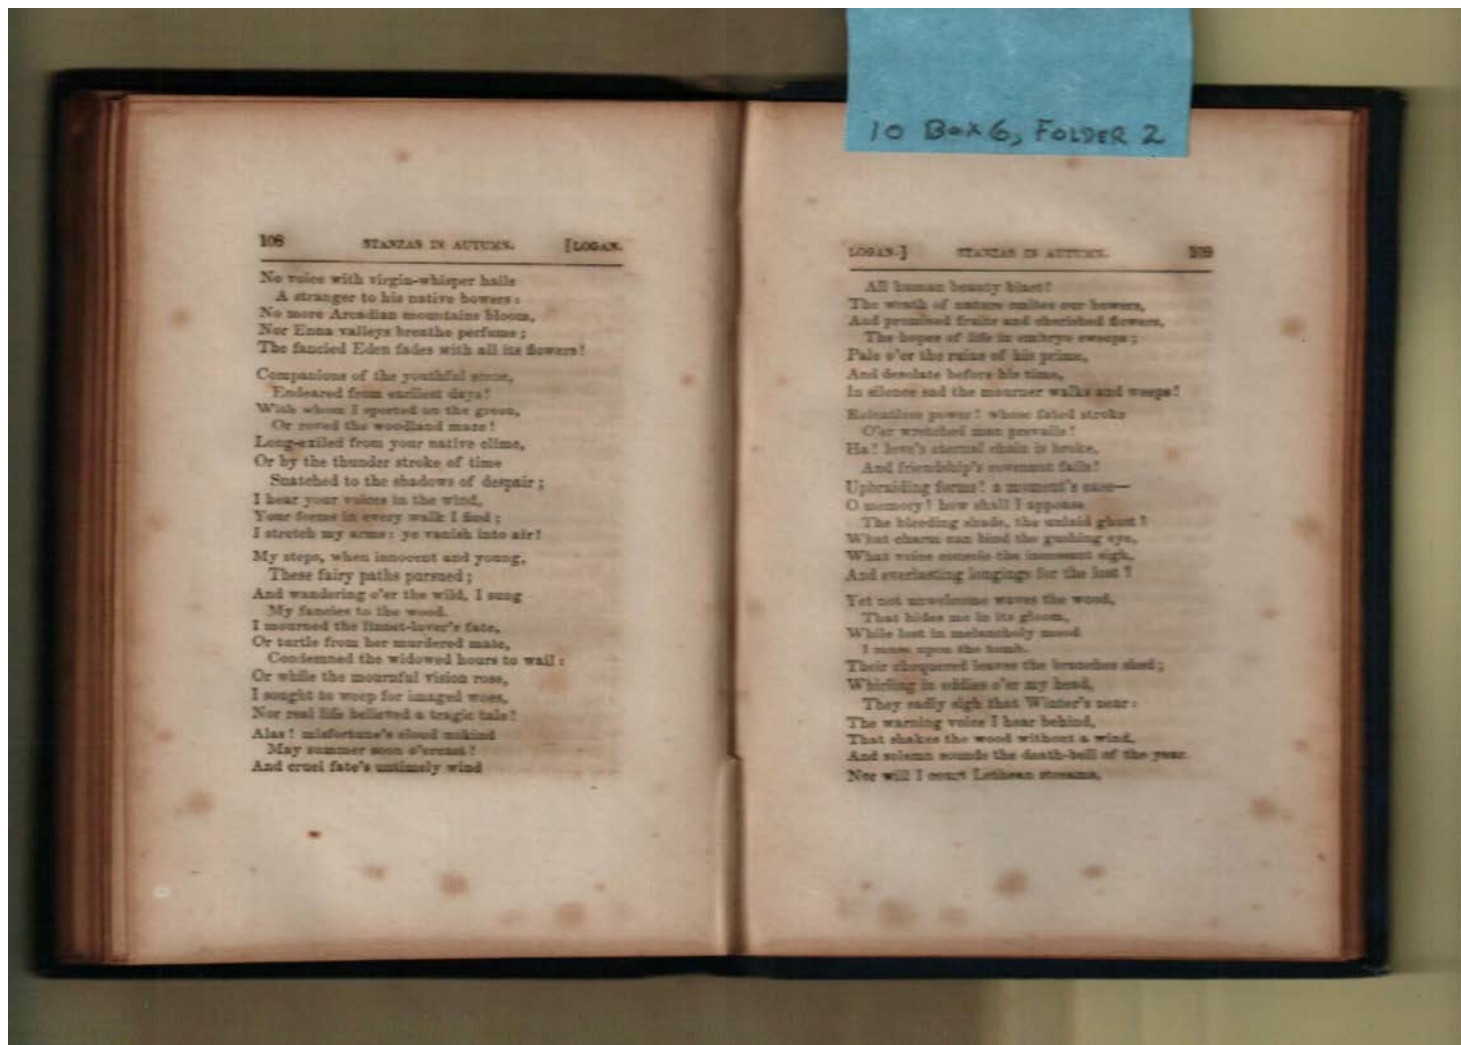 10 Box 6, FOLDER 2
108 STANZAS IN AUTUMN. [LOGAN.
No voice with virgin-whisper hails
A stranger to his native bowers:
No more Arcadian mountains bloom,
Nor Enna valleys breathe perfume;
The fancied Eden fades with all its flowers!
Companions of the youthful scene,
Endeared from earliest days!
With whom I sported on the green,
Or roved the woodland maze!
Long-exiled from your native clime,
Or by the thunder stroke of time
Snatched to the shadows of despair;
I hear your voices in the wind,
Your forms in every walk I find;
I stretch my arms: ye vanish into air!
My steps, when innocent and young,
These fairy paths pursued;
And wandering o'er the wild, I sung
My fancies to the wood.
I mourned the linnet-lover's fate,
Or turtle from her murdered mate,
Condemned the widowed hours to wail:
Or while the mournful vision rose,
I sought to weep for imaged woes,
Nor real life believed a tragic tale!
Alas! misfortune's cloud unkind
May summer soon o'ercast!
And cruel fate's untimely wind
LOGAN.] STANZAS IN AUTUMN. 109
All human beauty blast!
The wrath of nature smites our bowers,
And promised fruits and cherished flowers,
The hopes of life in embryo sweeps;
Pale o'er the ruins of his prime,
And desolate before his time,
In silence sad the mourner walks and weeps!
Relentless power! whose fated stroke
O'er wretched man prevails!
Ha! love's eternal chain is broke,
And friendship's covenant fails!
Upbraiding forms! a moment's ease—
O memory! how shall I appease
The bleeding shade, the unlaid ghost?
What charm can bind the gushing eye,
What voice console the incessant sigh,
And everlasting longings for the lost?
Yet not unwelcome waves the wood,
That hides me in its gloom,
While lost in melancholy mood
I muse upon the tomb.
Their chequered leaves the branches shed;
Whirling in eddies o'er my head,
They sadly sigh that Winter's near:
The warning voice I hear behind,
That shakes the wood without a wind,
And solemn sounds the death-bell of the year.
Nor will I court Lethean streams,